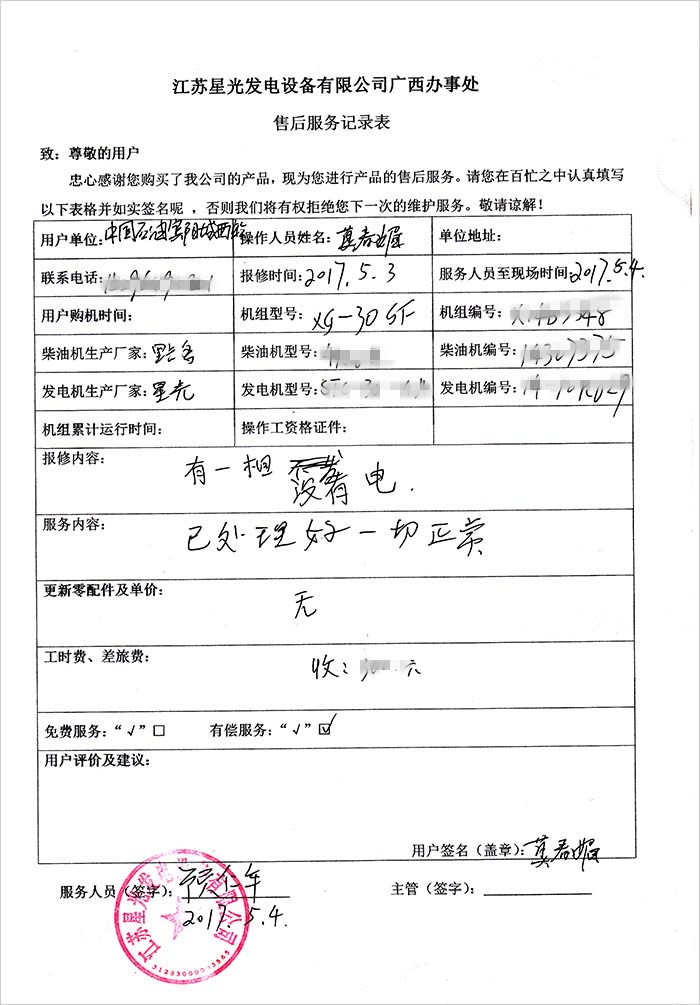 江苏星光发电设备有限公司广西办事处
售后服务记录表
致：尊敬的用户
忠心感谢您购买了我公司的产品，现为您进行产品的售后服务。请您在百忙之中认真填写
以下表格并如实签名呢，否则我们将有权拒绝您下一次的维护服务。敬请谅解！
用户单位：中国石油宾阳城西站 操作人员姓名：莫春媚 单位地址：
联系电话： 报修时间：2017.5.3 服务人员至现场时间：2017.5.4.
用户购机时间： 机组型号：XG-30GF 机组编号：
柴油机生产厂家： 柴油机型号： 柴油机编号：
发电机生产厂家：星光 发电机型号： 发电机编号：
机组累计运行时间： 操作工资格证件：
报修内容：
有一相 没有电.
服务内容：
已处理好一切正常
更新零配件及单价：
无
工时费、差旅费：
收： 元
免费服务：“√”□ 有偿服务：“√”☑
用户评价及建议：
用户签名（盖章）：莫春媚
服务人员（签字）： 主管（签字）：
2017.5.4.
江苏星光发电设备有限公司